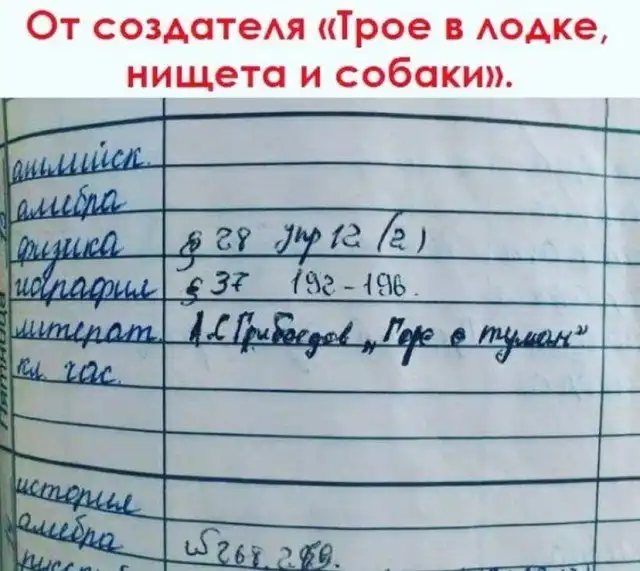 От создателя «Трое в лодке,
нищета и собаки».
английск.
алгебра
физика § 28 упр 12 (2)
география § 37 192-196.
литерат. А.С Грибоедов „Горе о туман"
кл. час.
Пятница
история
алгебра